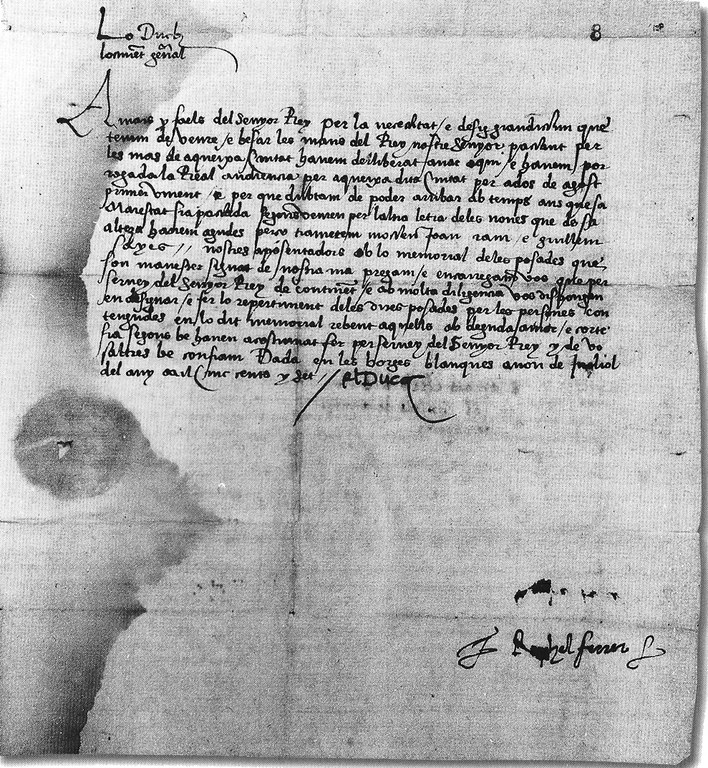 Lo Duch
locment gñal
8
Amats y faels del Senyor Rey per la necesitat e desig grandissim que
tenim de veure / e besar les mans del Rey nostre Senyor, passant per
les mas de aqueixa Ciutat havem deliberat anar aqui / e havem por
rogada la Real audiencia per aqueixa dita Ciutat per a dos de agost
primer vinent / e per que dubtam de poder arribar ab temps ans que sa
Maiestat sia passada segons veureu per la letra de les noves que de sa
alteza havem agudes perço trametem mossen Joan ram / e guillem
sayes // nostres aposentadors ab lo memorial de les posades que
son manester signat de nostra ma pregam / e encarregam vos que per
servey del Senyor Rey de continēt / e ab molta diligencia vos dispongau
en designar / e fer lo repertiment de les dites posades per les persones con
tengudes en lo dit memorial rebent aquells ab deguda amor / e corte
sia segons be haveu acostumat fer per servey del Senyor Rey y de vo
saltres be confiam Dada en les borges blanques a nou de Juliol
del any mil Cinc cents y set // el Duc
Raphel ferrer